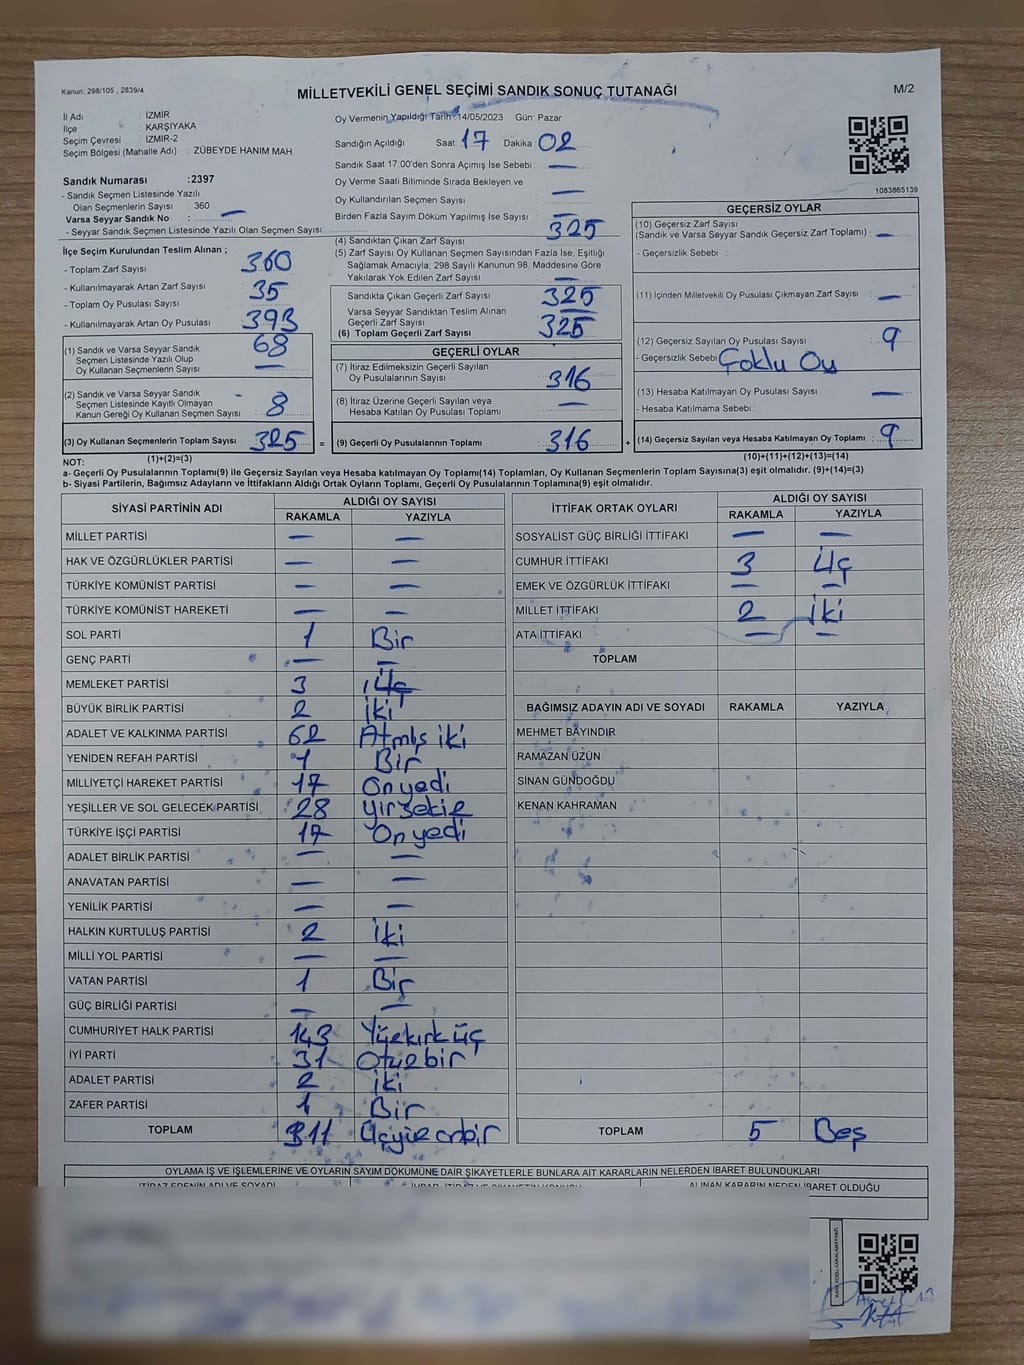 Kanun: 298/105 , 2839/4
MİLLETVEKİLİ GENEL SEÇİMİ SANDIK SONUÇ TUTANAĞI
M/2
İl Adı : İZMİR
İlçe : KARŞIYAKA
Seçim Çevresi : İZMİR-2
Seçim Bölgesi (Mahalle Adı) : ZÜBEYDE HANIM MAH.
Oy Vermenin Yapıldığı Tarih: 14/05/2023 Gün: Pazar
Sandığın Açıldığı Saat: 17 Dakika: 02
Sandık Saat 17:00'den Sonra Açımış İse Sebebi : —
Oy Verme Saati Bitiminde Sırada Bekleyen ve
Oy Kullandırılan Seçmen Sayısı : —
Birden Fazla Sayım Döküm Yapılmış İse Sayısı : —
1083865139
Sandık Numarası :2397
- Sandık Seçmen Listesinde Yazılı
Olan Seçmenlerin Sayısı : 360
Varsa Seyyar Sandık No : —
- Seyyar Sandık Seçmen Listesinde Yazılı Olan Seçmen Sayısı:
İlçe Seçim Kurulundan Teslim Alınan ;
- Toplam Zarf Sayısı : 360
- Kullanılmayarak Artan Zarf Sayısı : 35
- Toplam Oy Pusulası Sayısı : 393
- Kullanılmayarak Artan Oy Pusulası : 68
(1) Sandık ve Varsa Seyyar Sandık
Seçmen Listesinde Yazılı Olup
Oy Kullanan Seçmenlerin Sayısı : —
(2) Sandık ve Varsa Seyyar Sandık
Seçmen Listesinde Kayıtlı Olmayan
Kanun Gereği Oy Kullanan Seçmen Sayısı : 8
(3) Oy Kullanan Seçmenlerin Toplam Sayısı 325
(1)+(2)=(3)
(4) Sandıktan Çıkan Zarf Sayısı : 325
(5) Zarf Sayısı Oy Kullanan Seçmen Sayısından Fazla İse, Eşitliği
Sağlamak Amacıyla; 298 Sayılı Kanunun 98. Maddesine Göre
Yakılarak Yok Edilen Zarf Sayısı : —
Sandıkta Çıkan Geçerli Zarf Sayısı : 325
Varsa Seyyar Sandıktan Teslim Alınan
Geçerli Zarf Sayısı : —
(6) Toplam Geçerli Zarf Sayısı : 325
GEÇERLİ OYLAR
(7) İtiraz Edilmeksizin Geçerli Sayılan
Oy Pusulalarının Sayısı : 316
(8) İtiraz Üzerine Geçerli Sayılan veya
Hesaba Katılan Oy Pusulası Toplamı : —
= (9) Geçerli Oy Pusulalarının Toplamı : 316 +
GEÇERSİZ OYLAR
(10) Geçersiz Zarf Sayısı
(Sandık ve Varsa Seyyar Sandık Geçersiz Zarf Toplamı) : —
- Geçersizlik Sebebi :
(11) İçinden Milletvekili Oy Pusulası Çıkmayan Zarf Sayısı : —
(12) Geçersiz Sayılan Oy Pusulası Sayısı : 9
- Geçersizlik Sebebi : Çoklu Oy
(13) Hesaba Katılmayan Oy Pusulası Sayısı : —
- Hesaba Katılmama Sebebi :
(14) Geçersiz Sayılan veya Hesaba Katılmayan Oy Toplamı : 9
(10)+(11)+(12)+(13)=(14)
NOT:
a- Geçerli Oy Pusulalarının Toplamı(9) ile Geçersiz Sayılan veya Hesaba katılmayan Oy Toplamı(14) Toplamları, Oy Kullanan Seçmenlerin Toplam Sayısına(3) eşit olmalıdır. (9)+(14)=(3)
b- Siyasi Partilerin, Bağımsız Adayların ve İttifakların Aldığı Ortak Oyların Toplamı, Geçerli Oy Pusulalarının Toplamına(9) eşit olmalıdır.
SİYASİ PARTİNİN ADI ALDIĞI OY SAYISI
RAKAMLA YAZIYLA
MİLLET PARTİSİ — —
HAK VE ÖZGÜRLÜKLER PARTİSİ — —
TÜRKİYE KOMÜNİST PARTİSİ — —
TÜRKİYE KOMÜNİST HAREKETİ — —
SOL PARTİ 1 Bir
GENÇ PARTİ — —
MEMLEKET PARTİSİ 3 Üç
BÜYÜK BİRLİK PARTİSİ 2 İki
ADALET VE KALKINMA PARTİSİ 62 Atmış iki
YENİDEN REFAH PARTİSİ 1 Bir
MİLLİYETÇİ HAREKET PARTİSİ 17 Onyedi
YEŞİLLER VE SOL GELECEK PARTİSİ 28
TÜRKİYE İŞÇİ PARTİSİ 17 Onyedi
ADALET BİRLİK PARTİSİ — —
ANAVATAN PARTİSİ — —
YENİLİK PARTİSİ — —
HALKIN KURTULUŞ PARTİSİ 2 İki
MİLLİ YOL PARTİSİ — —
VATAN PARTİSİ 1 Bir
GÜÇ BİRLİĞİ PARTİSİ — —
CUMHURİYET HALK PARTİSİ 143 Yüzkırk üç
İYİ PARTİ 31 Otuzbir
ADALET PARTİSİ 2 iki
ZAFER PARTİSİ 1 Bir
TOPLAM 311 Üçyüz onbir
İTTİFAK ORTAK OYLARI ALDIĞI OY SAYISI
RAKAMLA YAZIYLA
SOSYALİST GÜÇ BİRLİĞİ İTTİFAKI — —
CUMHUR İTTİFAKI 3 Üç
EMEK VE ÖZGÜRLÜK İTTİFAKI — —
MİLLET İTTİFAKI 2 İki
ATA İTTİFAKI — —
TOPLAM
BAĞIMSIZ ADAYIN ADI VE SOYADI RAKAMLA YAZIYLA
MEHMET BAYINDIR
RAMAZAN ÜZÜN
SİNAN GÜNDOĞDU
KENAN KAHRAMAN
TOPLAM 5 Beş
OYLAMA İŞ VE İŞLEMLERİNE VE OYLARIN SAYIM DÖKÜMÜNE DAİR ŞİKAYETLERLE BUNLARA AİT KARARLARIN NELERDEN İBARET BULUNDUKLARI
İTİRAZ EDENİN ADI VE SOYADI ALINAN KARARIN NEDEN İBARET OLDUĞU